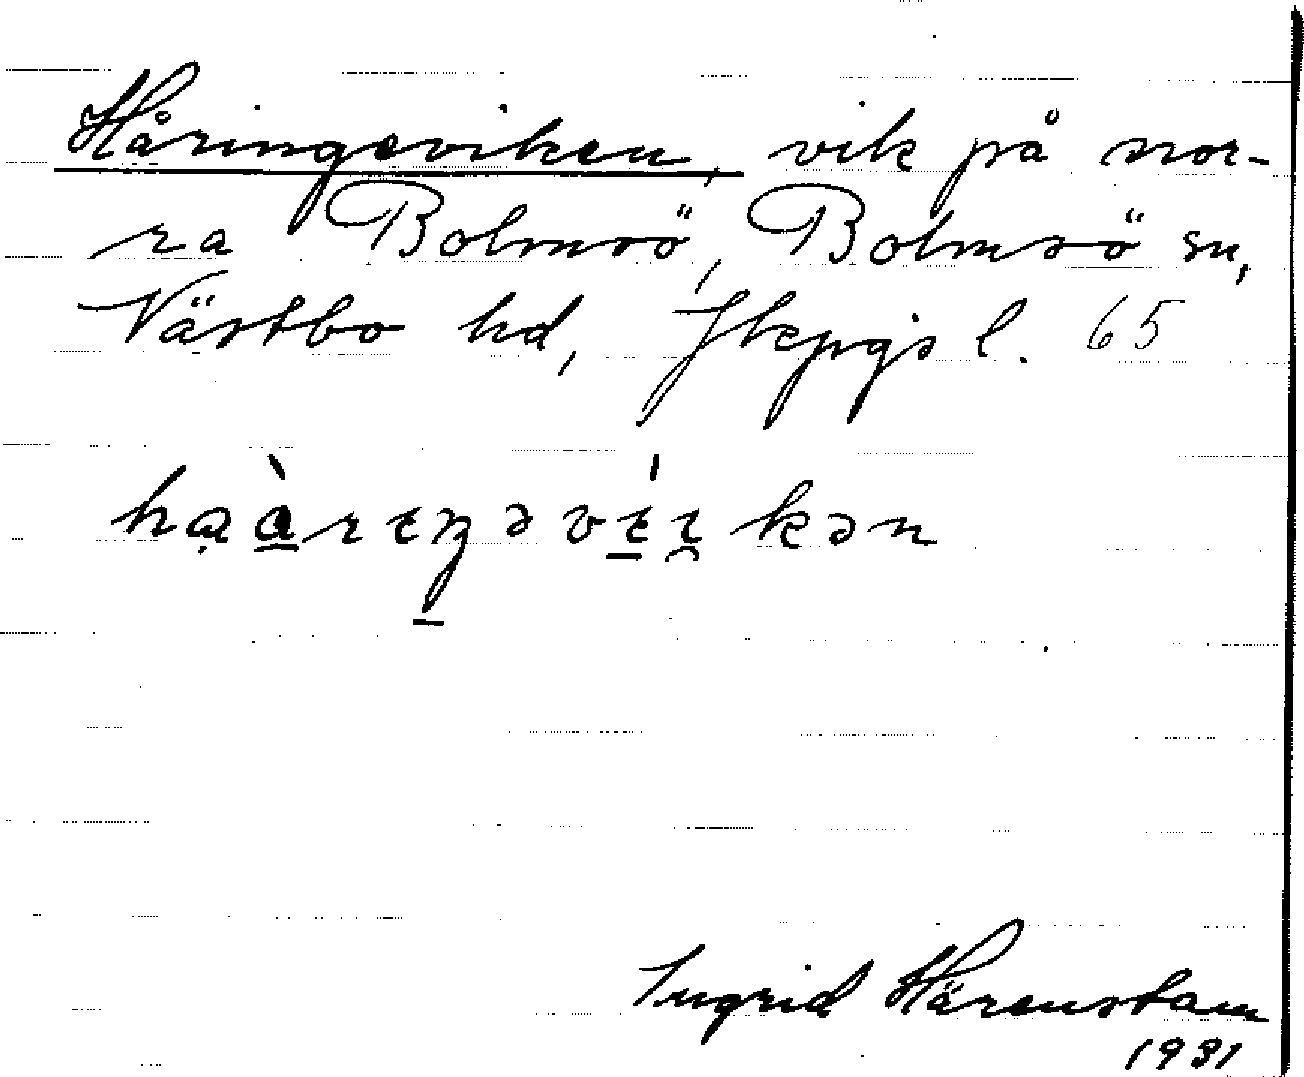 Håringeviken, vik på nor-
ra Bolmsö, Bolmsö sn,
Västbo hd, Jkpgs l. 65
Ingrid Härenstam
1931